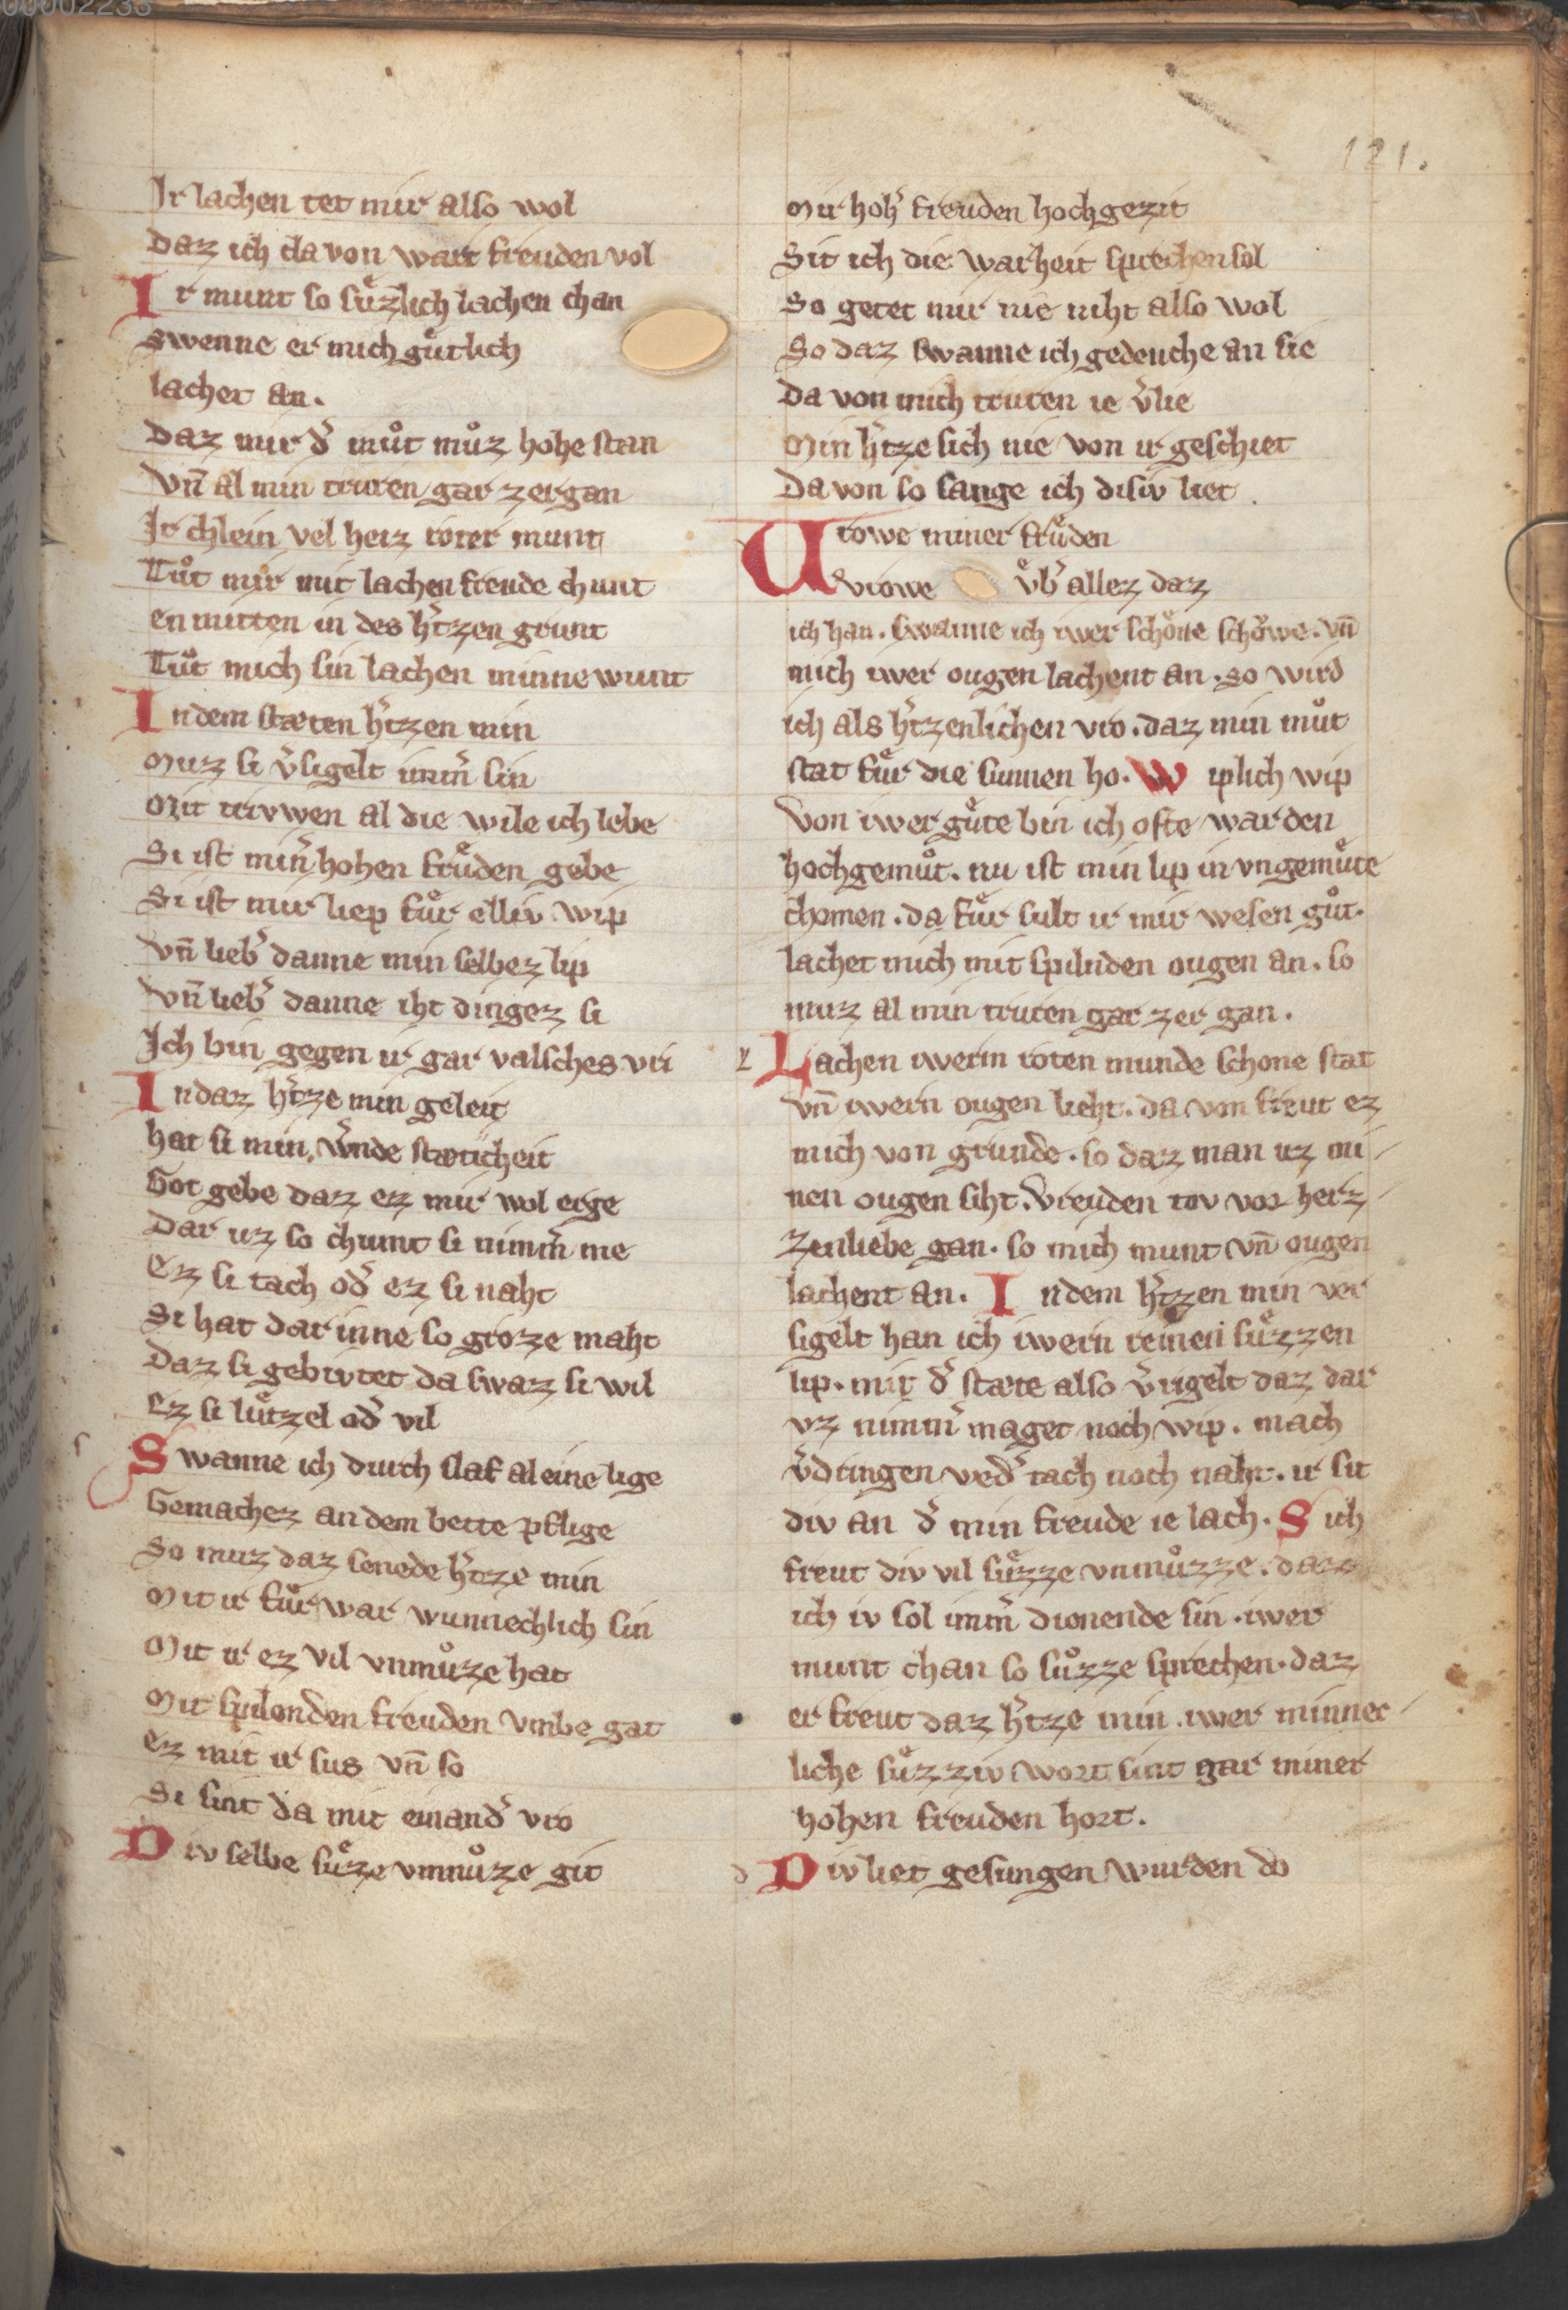 00002233
121.
Ir lachen tet mir also wol
Daz ich da von wart freuden vol
Ir munt so suͤzlich lachen chan
swenne er mich guͤtlich
lachet an.
Daz mir d͛ muͦt muͦz hohe stan
Vn̄ al min truren gar zergan
Ir chlein vel heiz roter munt
Tuͦt mir mit lachen freude chunt
en mitten in des h͛tzen grunt
Tuͦt mich sin lachen minne wunt
In dem stæten h͛tzen min
Muz si v͛sigelt imm͛ sin
Mit trivwen al die wile ich lebe
Si ist min͛ hohen fruͤden gebe
Si ist mir liep fuͤr elliv wip
Vn̄ lieb͛ danne min selbez lip
Vn̄ lieb͛ danne iht dingez si
Ich bin gegen ir gar valsches vri
In daz h͛tze min geleit
hat si min, w͛nde stæticheit
Got gebe daz ez mir wol erge
Dar uz so chumt si nimm͛ me
Ez si tach od͛ ez si naht
Si hat dar inne so groze maht
Daz si gebivtet da swaz si wil
Ez si luͤtzel od͛ vil
Swanne ich durch slaf al eine lige
Gemachez an dem bette pflige
So muz daz senede h͛tze min
Mit ir fuͤr war wunnechlich sin
Mit ir ez vil vnmuͦze hat
Mit spilonden freuden vmbe gat
ez mit ir sus vn̄ so
Si sint da mit einand͛ vro
Div selbe suͤze vnmuͦze git
Mir hoh͛ freuden hochgezit
Sit ich die warheit sprechen sol
So getet mir nie niht also wol
So daz swanne ich gedenche an sie
Da von mich truren ie v͛lie
Min h͛tze sich nie von ir geschiet
Da von so sange ich disiv liet
Vrowe miner fruͤden
vrowe uͤb͛ allez daz
ich han. swanne ich iwer schoͤne schoͤwe. vn̄
mich iwer ougen lachent an. so wird
ich als h͛tzenlichen vro. daz min muͦt
stat fuͤr die sunnen ho. Wiplich wip
von iwer guͤte bin ich ofte warden
hochgemuͦt. nu ist min lip in vngemuͤte
chomen. da fuͤr sult ir mir wesen guͦt.
lachet mich mit spilnden ougen an. so
muz al min truren gar zer gan.
Lachen iwerm roten munde schone stat
vn̄ iwern ougen lieht. da von freut ez
mich von grunde. so daz man uz mi
nen ougen siht. vreuden tov vor herz
zenliebe gan. so mich munt vn̄ ougen
lachent an. In dem h͛tzen min ver
sigelt han ich iwern reinen suͤzzen
lip. mit d͛ stæte also v͛rigelt daz dar
vz nimm͛ maget noch wip. mach
v͛dringen wed͛ tach noch naht. ir sit
div an d͛ min freude ie lach. Sich
freut div vil suͤzze vnmuͦzze. daz
ich iv sol imm͛ dionende sin. iwer
munt chan so suͦzze sprechen. daz
er freut daz h͛tze min. iwer minner
liche suͤzziv wort sint gar miner
hohen freuden hort.
Div liet gesungen wurden do